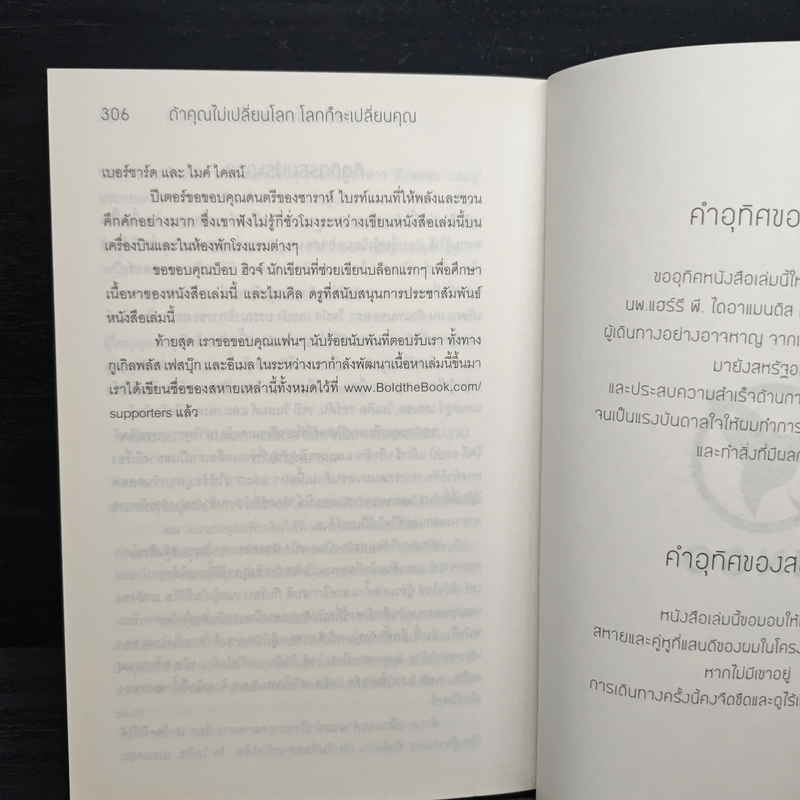 306 ถ้าคุณไม่เปลี่ยนโลก โลกก็จะเปลี่ยนคุณ
เบอร์ชาร์ด และ ไมค์ ไคลน์
ปีเตอร์ขอขอบคุณดนตรีของซาราห์ ไบรท์แมนที่ให้พลังและชวน
คึกคักอย่างมาก ซึ่งเขาฟังไม่รู้กี่ชั่วโมงระหว่างเขียนหนังสือเล่มนี้บน
เครื่องบินและในห้องพักโรงแรมต่างๆ
ขอขอบคุณบ็อบ ฮิวจ์ นักเขียนที่ช่วยเขียนบล็อกแรกๆ เพื่อศึกษา
เนื้อหาของหนังสือเล่มนี้ และไมเคิล ดรูที่สนับสนุนการประชาสัมพันธ์
หนังสือเล่มนี้
ท้ายสุด เราขอขอบคุณแฟนๆ นับร้อยนับพันที่ตอบรับเรา ทั้งทาง
กูเกิลพลัส เฟสบุ๊ก และอีเมล ในระหว่างเรากำลังพัฒนาเนื้อหาเล่มนี้ขึ้นมา
เราได้เขียนชื่อของสหายเหล่านี้ทั้งหมดไว้ที่ www.BoldtheBook.com/
supporters แล้ว
คำอุทิศขอ
ขออุทิศหนังสือเล่มนี้ให้
นพ.แฮร์รี พี. ไดอาแมนดิส
ผู้เดินทางอย่างอาจหาญ จาก
มายังสหรัฐอ
และประสบความสำเร็จด้านกา
จนเป็นแรงบันดาลใจให้ผมทำการ
และทำสิ่งที่มีผล
คำอุทิศของส
หนังสือเล่มนี้ขอมอบให้
สหายและคู่หูที่แสนดีของผมในโครง
หากไม่มีเขาอยู่
การเดินทางครั้งนี้คงจืดชืดและดูไร้